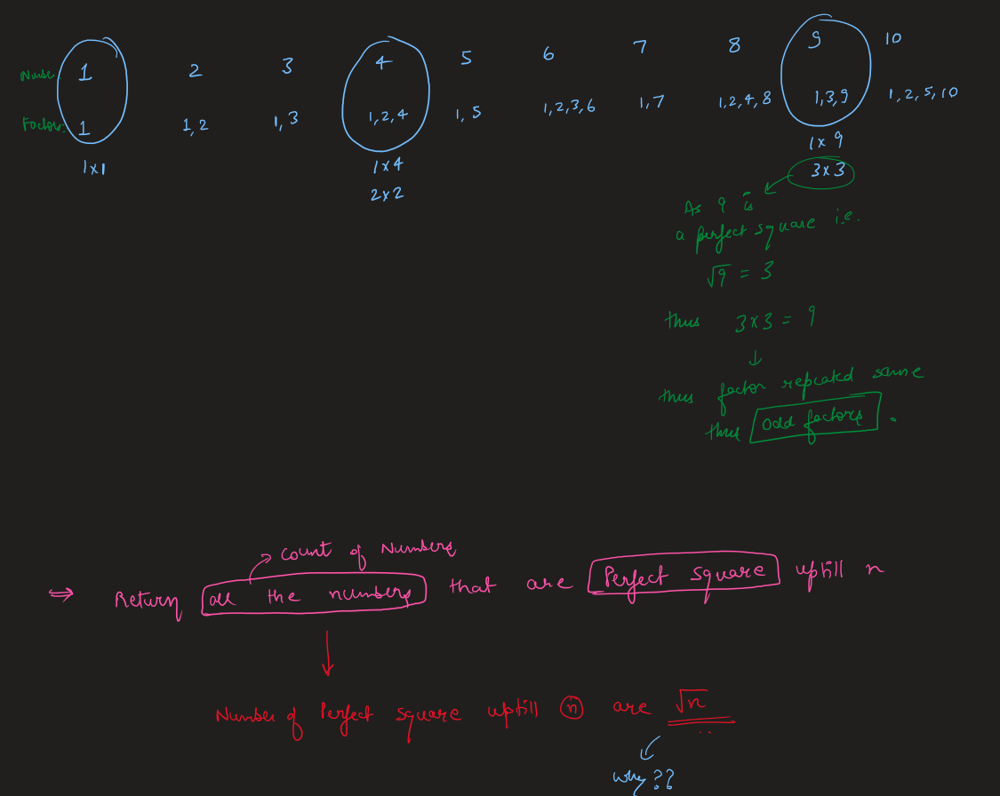 Nums: 1 2 3 4 5 6 7 8 9 10
Factors: 1 1, 2 1, 3 1, 2, 4 1, 5 1, 2, 3, 6 1, 7 1, 2, 4, 8 1, 3, 9 1, 2, 5, 10
1 x 1 1 x 4 1 x 9
2 x 2 3 x 3
As 9 is
a perfect square i.e.
√9 = 3
thus 3 x 3 = 9
↓
thus factor repeated same
thus odd factors.
→ Count of Numbers
⇒ Return all the numbers that are Perfect square uptill n
↓
Number of Perfect square uptill n are √n
why??